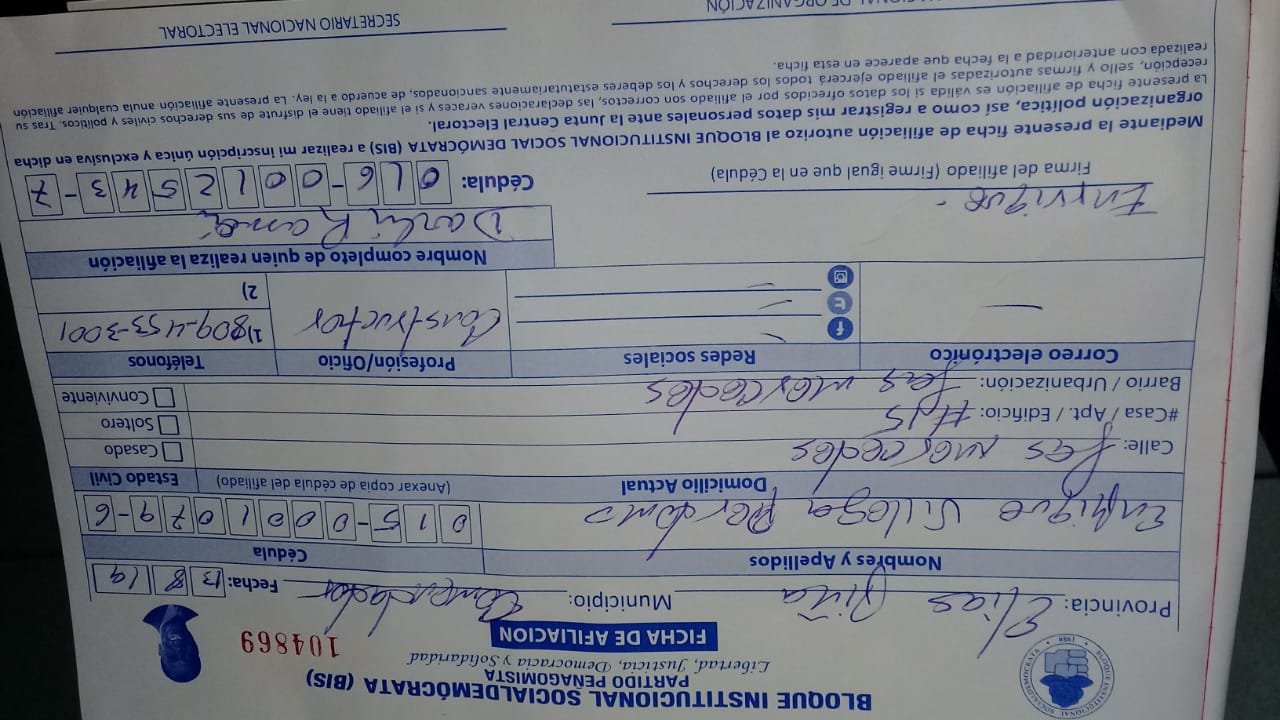 BLOQUE INSTITUCIONAL SOCIALDEMÓCRATA (BIS)
PARTIDO PEÑAGOMISTA
Libertad, Justicia, Democracia y Solidaridad
FICHA DE AFILIACION
104869
Provincia: Elias Piña Municipio: Comendador Fecha: 13 8 19
Nombres y Apellidos Cédula
Enrique Villega Perdomo 015-0001079-6
Domicilio Actual (Anexar copia de cédula del afiliado) Estado Civil
Calle: Las mercedes Casado
#Casa / Apt. / Edificio: #15 Soltero
Barrio / Urbanización: Las mercedes Conviviente
Correo electrónico Redes sociales Profesión/Oficio Teléfonos
— Constructor 1) 809-453-3001
2)
Nombre completo de quien realiza la afiliación
Darli Ramé
Enrique
Firma del afiliado (Firme igual que en la Cédula) Cédula: 016-0012543-7
Mediante la presente ficha de afiliación autorizo al BLOQUE INSTITUCIONAL SOCIAL DEMÓCRATA (BIS) a realizar mi inscripción única y exclusiva en dicha
organización política, así como a registrar mis datos personales ante la Junta Central Electoral.
La presente ficha de afiliación es válida si los datos ofrecidos por el afiliado son correctos, las declaraciones veraces y si el afiliado tiene el disfrute de sus derechos civiles y políticos. Tras su
recepción, sello y firmas autorizadas el afiliado ejercerá todos los derechos y los deberes estatutariamente sancionados, de acuerdo a la ley. La presente afiliación anula cualquier afiliación
realizada con anterioridad a la fecha que aparece en esta ficha.
DE ORGANIZACIÓN SECRETARIO NACIONAL ELECTORAL